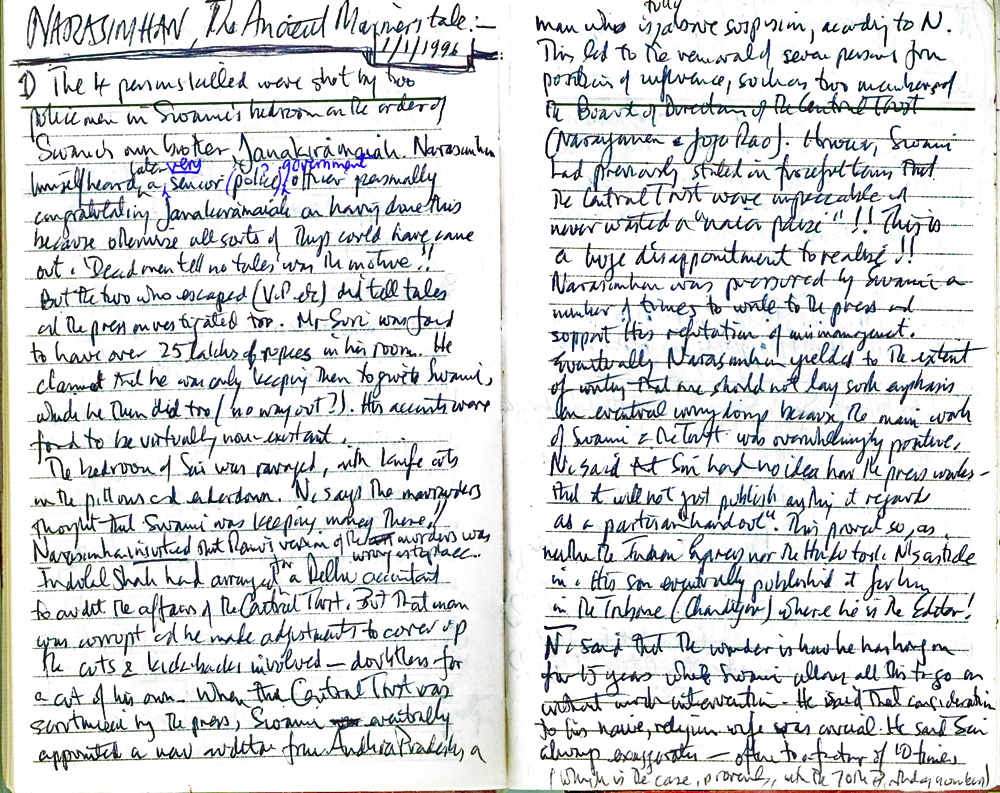 NARASIMHAN, The Ancient Mariner's tale :-
1/1/1996
1) The 4 persons killed were shot by two
policemen in Swami's bedroom on the order of
Swami's own brother Janakiramaiah. Narasimhan
himself heard, a later very senior (police) government officer personally
congratulating Janakiramaiah on having done this
because otherwise all sorts of things could have come
out. 'Dead men tell no tales' was the motive!!
But the two who escaped (V.P. etc) did tell tales
and the press investigated too. Mr Suri was found
to have over 25 lakhs of rupees in his room. He
claimed that he was only keeping them to give to Swami,
which he then did too (no way out?). His accounts were
found to be virtually non-existant.
The bedroom of Sai was ravaged, with knife cuts
in the pillows and eiderdown. N. says the marauders
thought that Swami was keeping money there!!
Narasimhan insisted that version of the murders was
wrong
Indulal Shah had arranged for a Delhi accountant
to audit the affairs of the Central Trust. But that man
was corrupt and he made adjustments to cover up
the cuts & kickbacks involved — doubtless for
a cut of his own. When the Central Trust was
scrutinised by the press, Swami eventually
appointed a new auditor from Andhra Pradesh, a
man who is fully above suspicion, according to N.
This led to the removal of seven persons from
positions of influence, such as two members of
the Board of Directors of the Central Trust
(Narayanan & Joga Rao). However, Swami
had previously stated in forceful terms that
the Central Trust were impeccable and
never wasted a "naia paise"!! This is
a huge disappointment to realise!!
Narasimhan was pressured by Swami a
number of times to write to the press and
support His refutation of mismanagement.
Eventually Narasimhan yielded to the extent
of writing that one should not lay such emphasis
on eventual wrong doings because the main work
of Swami & the Trust was overwhelmingly positive.
N. said that Sai had no idea how the press works -
that it will not just publish anything it regards
as a "partisan handout". This proved so, as
neither the Indian Express nor the Hindu took N's article
in. His son eventually published it for him
in the Tribune (Chandigarh) where he is the Editor!
N. said that the wonder is how he has hung on
for 15 years while Swami allows all this to go on
without much intervention. He said that consideration
to his naive, religious wife was crucial. He said Sai
always exaggerates - often to a factor of 10 times
(Which is the case, provenly, with the 70th